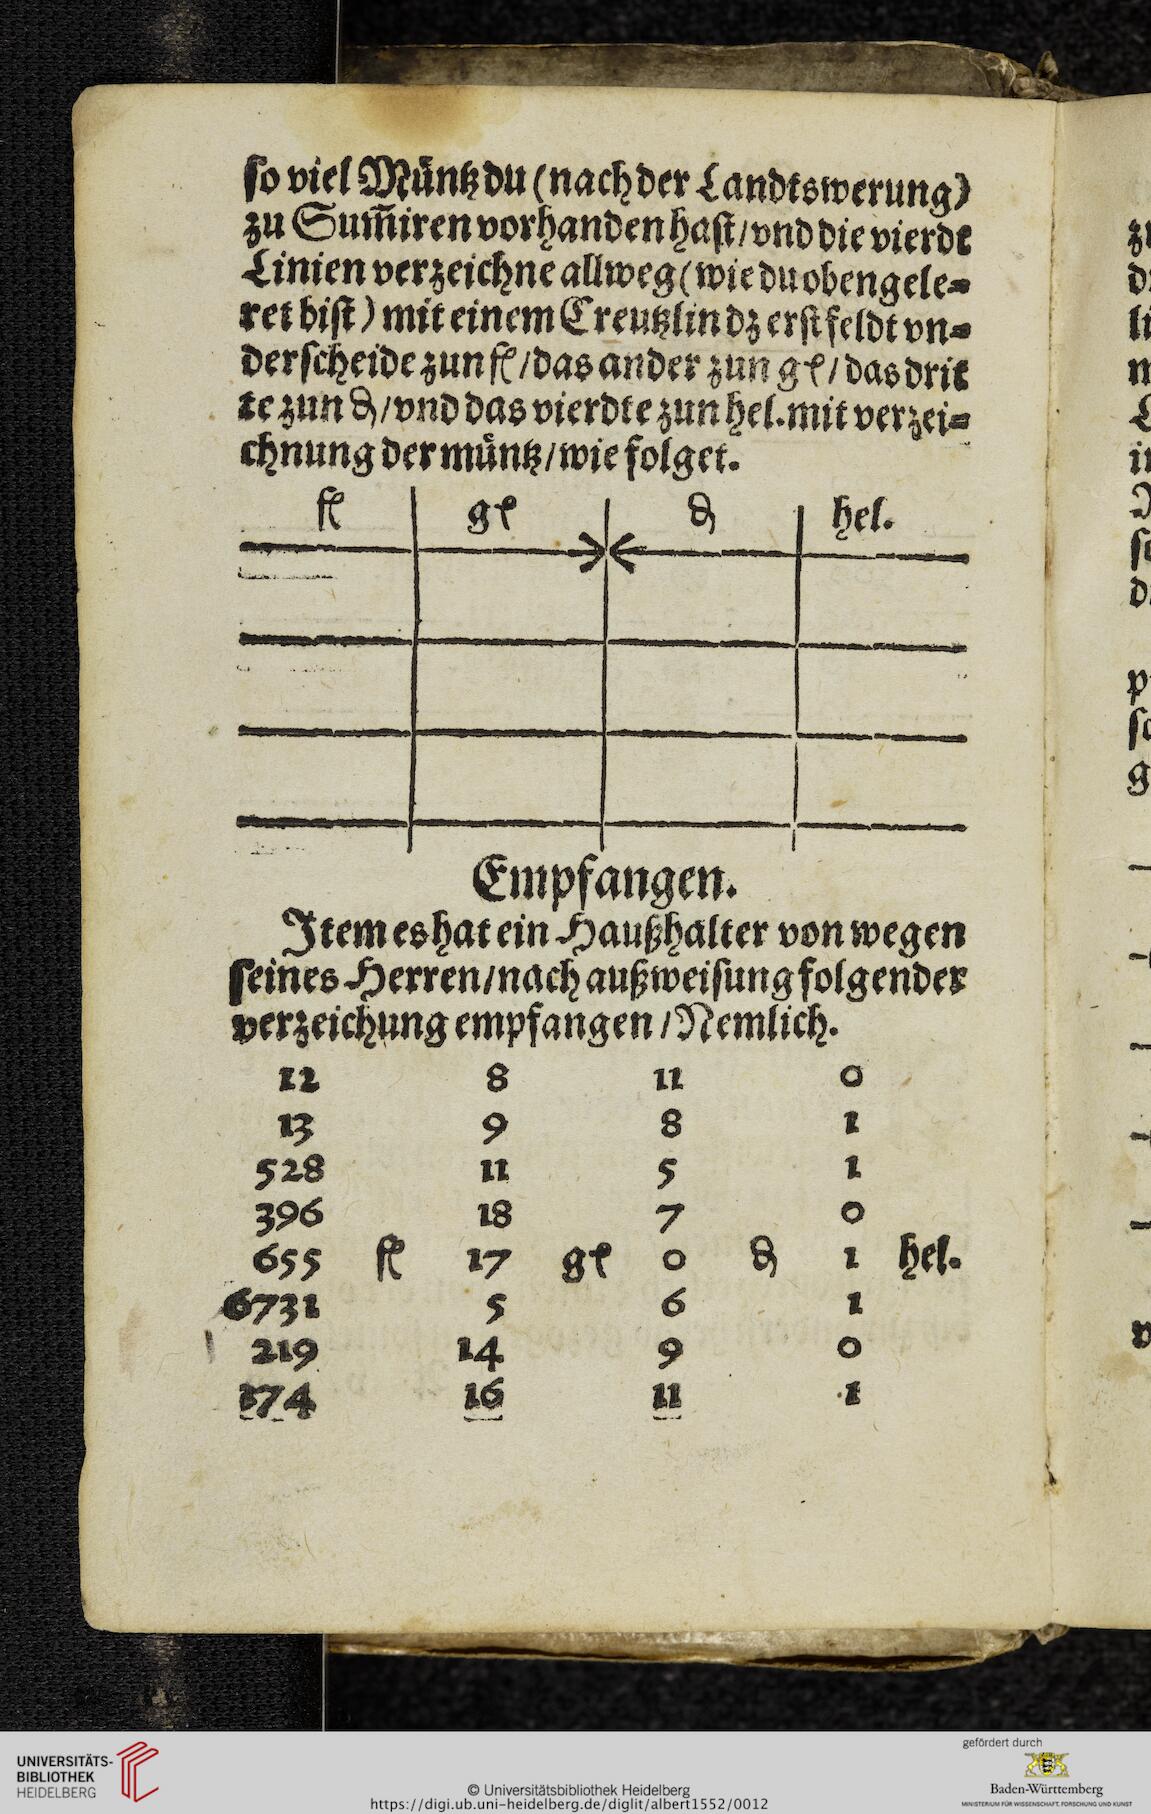 so viel Müntz du (nach der Landtswerung)
zu Sum̄iren vorhanden hast / vnd die vierdt
Linien verzeichne allweg (wie du oben gele=
ret bist) mit einem Creutzlin dz erst feldt vn=
derscheide zun fl / das ander zun gl / das drit
te zun ₰ / vnd das vierdte zun hel. mit verzei=
chnung der müntz / wie folget.
fl gl ₰ hel.
Empfangen.
Item es hat ein Haußhalter von wegen
seines Herren / nach außweisung folgender
verzeichung empfangen / Nemlich.
12 8 11 0
13 9 8 1
528 11 5 1
396 18 7 0
655 fl 17 gl 0 ₰ 1 hel.
6731 5 6 1
219 14 9 0
174 16 11 1
UNIVERSITÄTS-
BIBLIOTHEK
HEIDELBERG
© Universitätsbibliothek Heidelberg
https://digi.ub.uni-heidelberg.de/diglit/albert1552/0012
gefördert durch
Baden-Württemberg
MINISTERIUM FÜR WISSENSCHAFT, FORSCHUNG UND KUNST